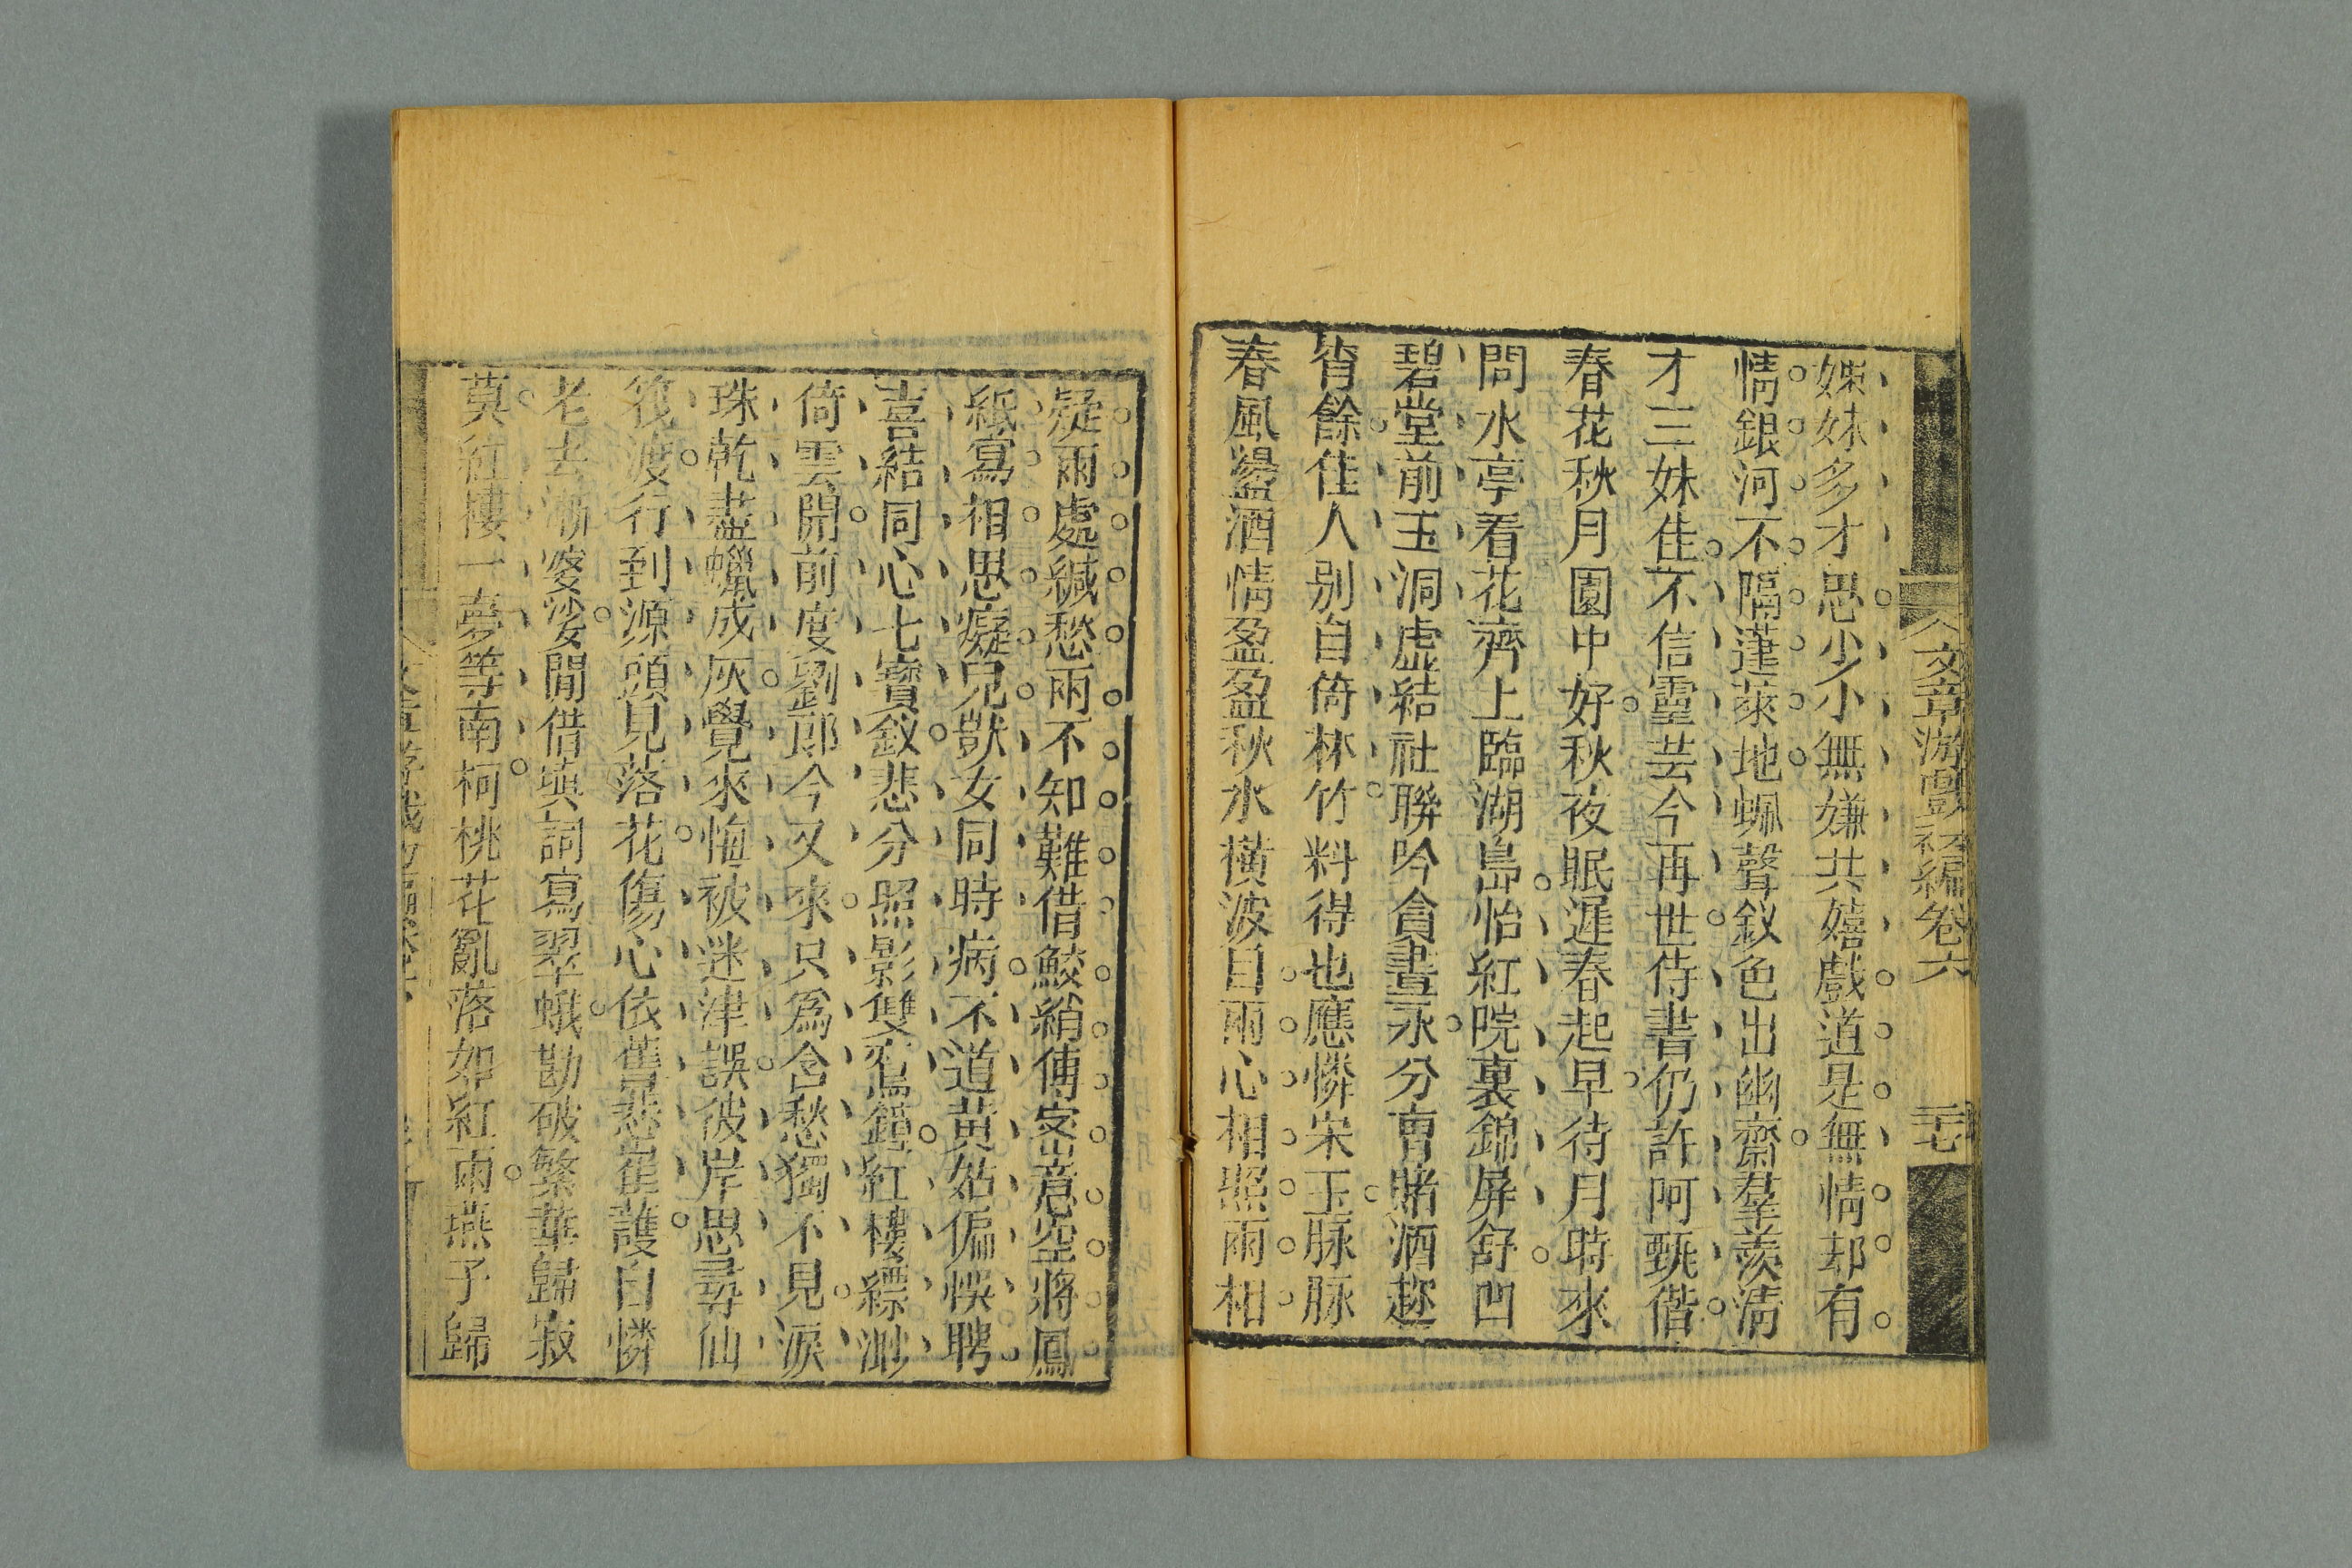 文章游戲初編卷六 二七
姊妹多才思少小無嫌共嬉戲道是無情却有
情銀河不隔蓬萊地珮聲釵色出幽齋羣羨清
才三妹佳不信靈芸今再世侍書仍許阿甄偕
春花秋月園中好秋夜眠遲春起早待月時來
問水亭看花齊上臨湖島怡紅院裏錦屏舒凹
碧堂前玉洞虛結社聯吟貪晝永分曹賭酒趂
宵餘佳人別自倚林竹料得也應憐宋玉脉脉
春風盪酒情盈盈秋水橫波目兩心相照兩相
疑兩處緘愁兩不知難借鮫綃傳密意空將鳳
紙寫相思癡兒獃女同時病不道黃姑偏悞聘
喜結同心七寶釵悲分照影雙鸞鏡紅樓縹緲
倚雲開前度劉郎今又來只爲含愁獨不見淚
珠乾盡蠟成灰覺來悔被迷津誤彼岸思尋仙
筏渡行到源頭見落花傷心依舊悲崔護自憐
老去漸婆娑閒借塡詞寫翠蛾勘破繁華歸寂
莫紅樓一夢等南柯桃花亂落如紅雨燕子歸